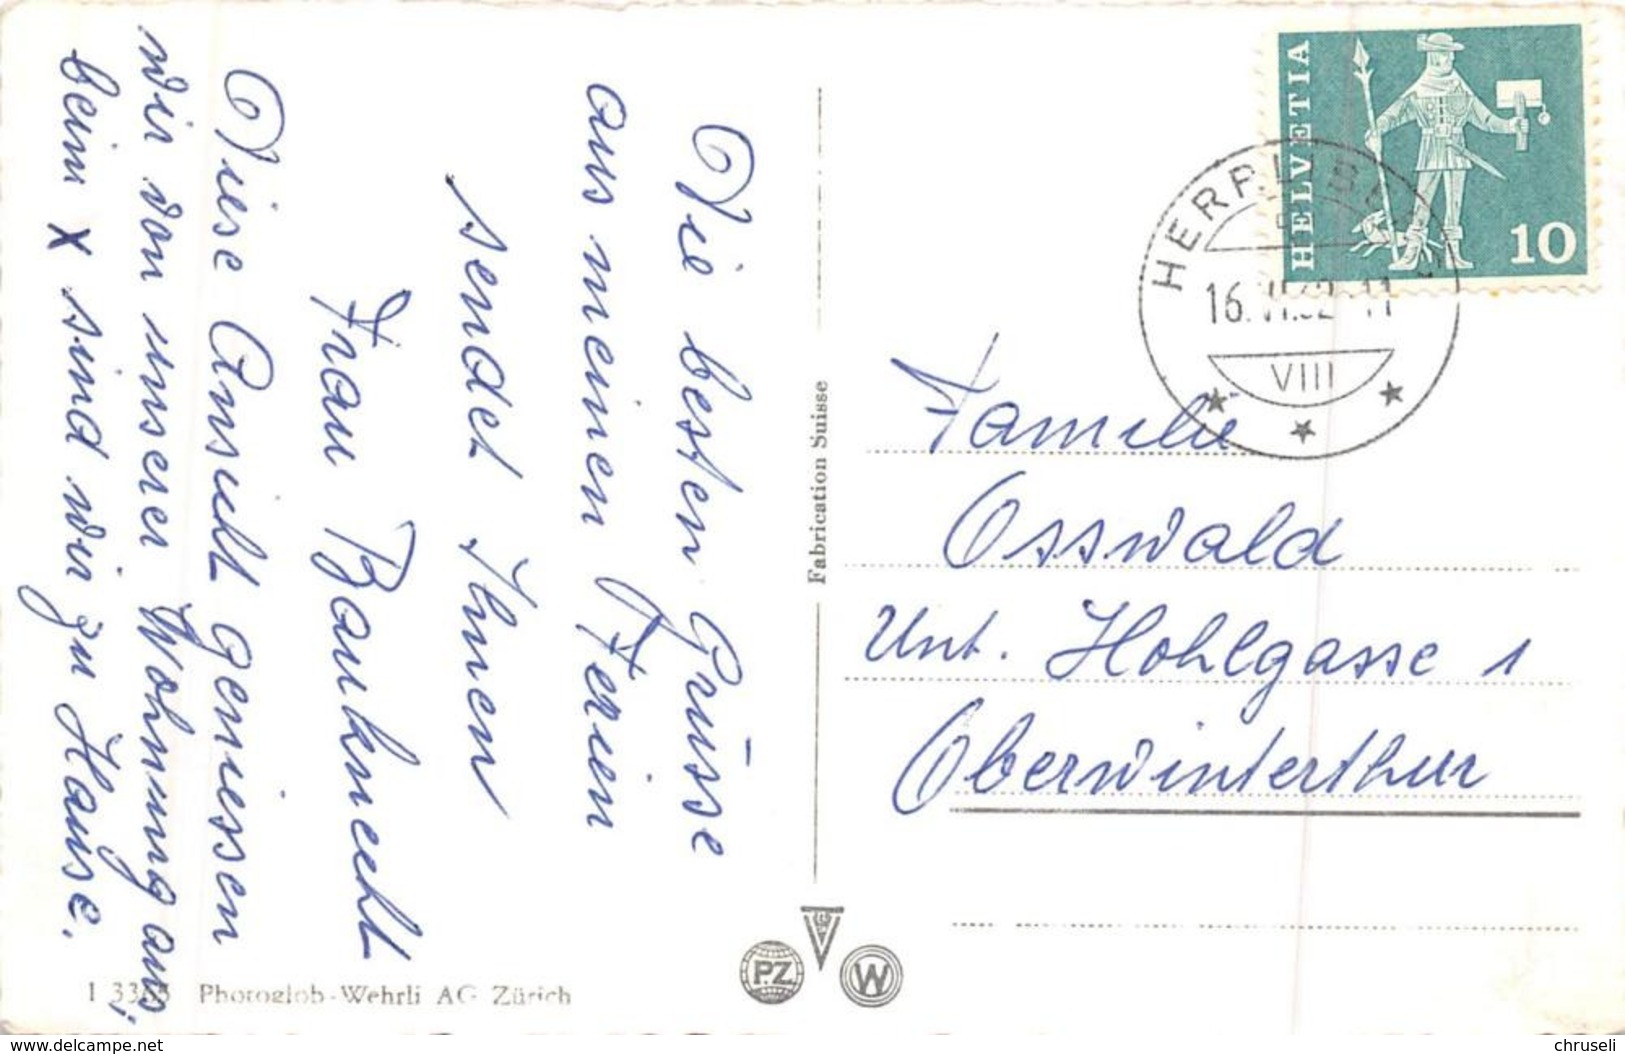 Die besten Grüsse
aus meinen Ferien
sendet Ihnen
Frau Bauknecht
Diese Ansicht geniessen
wir von unserer Wohnung aus,
beim X sind wir zu Hause.
Fabrication Suisse
HELVETIA
10
16. VI.62-11
VIII
Familie
Osswald
Unt. Hohlgasse 1
Oberwinterthur
Photoglob-Wehrli AG Zürich
PZ
W
www.delcampe.net
chruseli